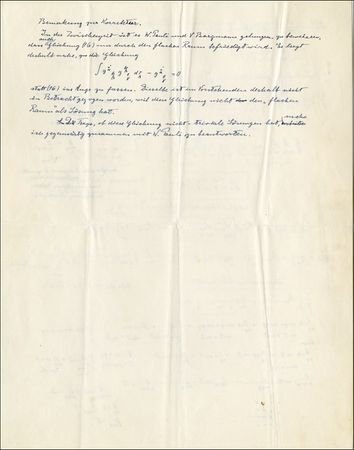 Bemerkung zur Korrektur.
In der Zwischenzeit ist es W. Pauli und V. Bargmann gelungen, zu beweisen,
dass auch Gleichung (16) nur durch den flachen Raum befriedigt wird. Es liegt
deshalb nahe, die Gleichung
= 0
statt (16) ins Auge zu fassen. Dieselbe ist im Vorstehenden deshalb nicht
in Betracht gezogen worden, weil diese Gleichung nicht den flachen
Raum als Lösung hat.
Die Frage, ob diese Gleichung nicht triviale Lösungen hat, suche
ich gegenwärtig zusammen mit W. Pauli zu beantworten.